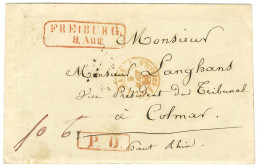 FREIBURG.
9. Aug.
Monsieur
Monsieur Langhans
Vice Président du Tribunal
à Colmar
P. O.
haut Rhin